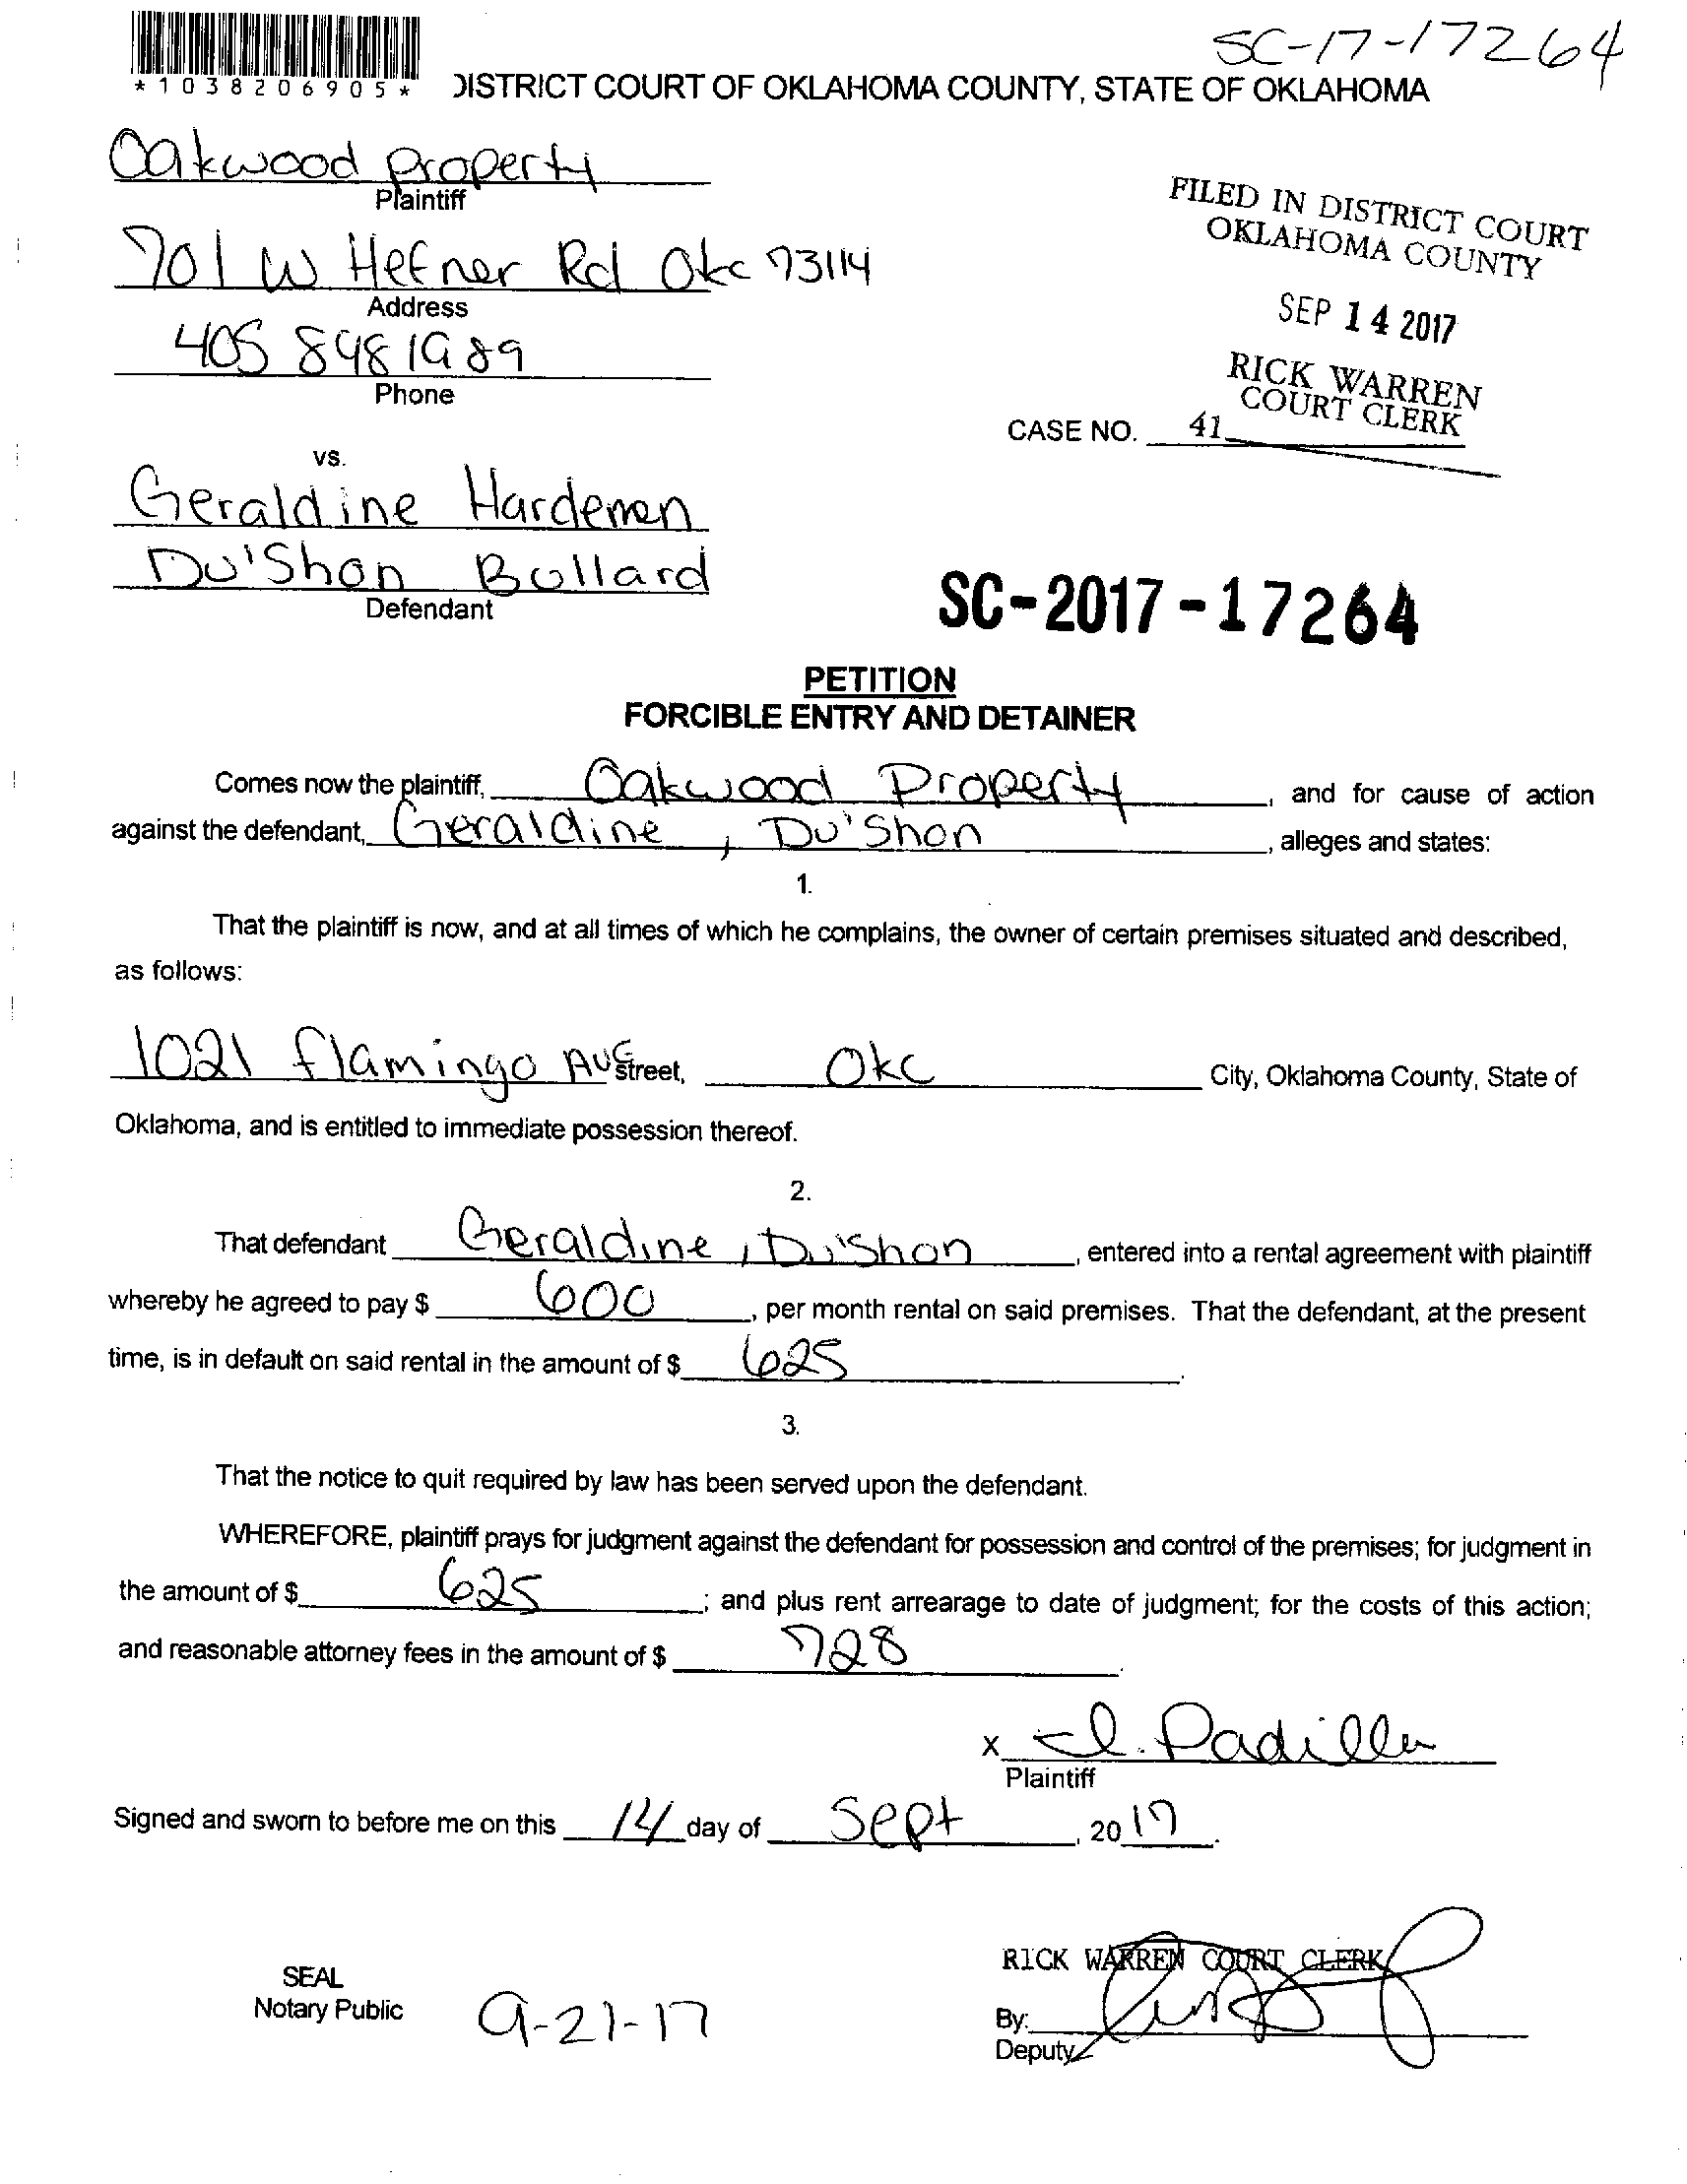 SC-17-17264
*1038206905*
DISTRICT COURT OF OKLAHOMA COUNTY, STATE OF OKLAHOMA
Oakwood Property
Plaintiff
701 W Hefner Rd Okc 73114
Address
405 848 1989
Phone
FILED IN DISTRICT COURT
OKLAHOMA COUNTY
SEP 14 2017
RICK WARREN
COURT CLERK
CASE NO. 41
vs.
Geraldine Hardemen
Du'Shon Bullard
Defendant
SC-2017-17264
PETITION
FORCIBLE ENTRY AND DETAINER
Comes now the plaintiff, Oakwood Property, and for cause of action
against the defendant, Geraldine, Du'Shon, alleges and states:
1.
That the plaintiff is now, and at all times of which he complains, the owner of certain premises situated and described,
as follows:
1021 flamingo Ave Street, Okc City, Oklahoma County, State of
Oklahoma, and is entitled to immediate possession thereof.
2.
That defendant Geraldine, Du'Shon, entered into a rental agreement with plaintiff
whereby he agreed to pay $ 600, per month rental on said premises. That the defendant, at the present
time, is in default on said rental in the amount of $ 625.
3.
That the notice to quit required by law has been served upon the defendant.
WHEREFORE, plaintiff prays for judgment against the defendant for possession and control of the premises; for judgment in
the amount of $ 625; and plus rent arrearage to date of judgment; for the costs of this action;
and reasonable attorney fees in the amount of $ 728.
x I. Padilla
Plaintiff
Signed and sworn to before me on this 14 day of Sept, 2017.
RICK WARREN COURT CLERK
SEAL
Notary Public
9-21-17
By:
Deputy